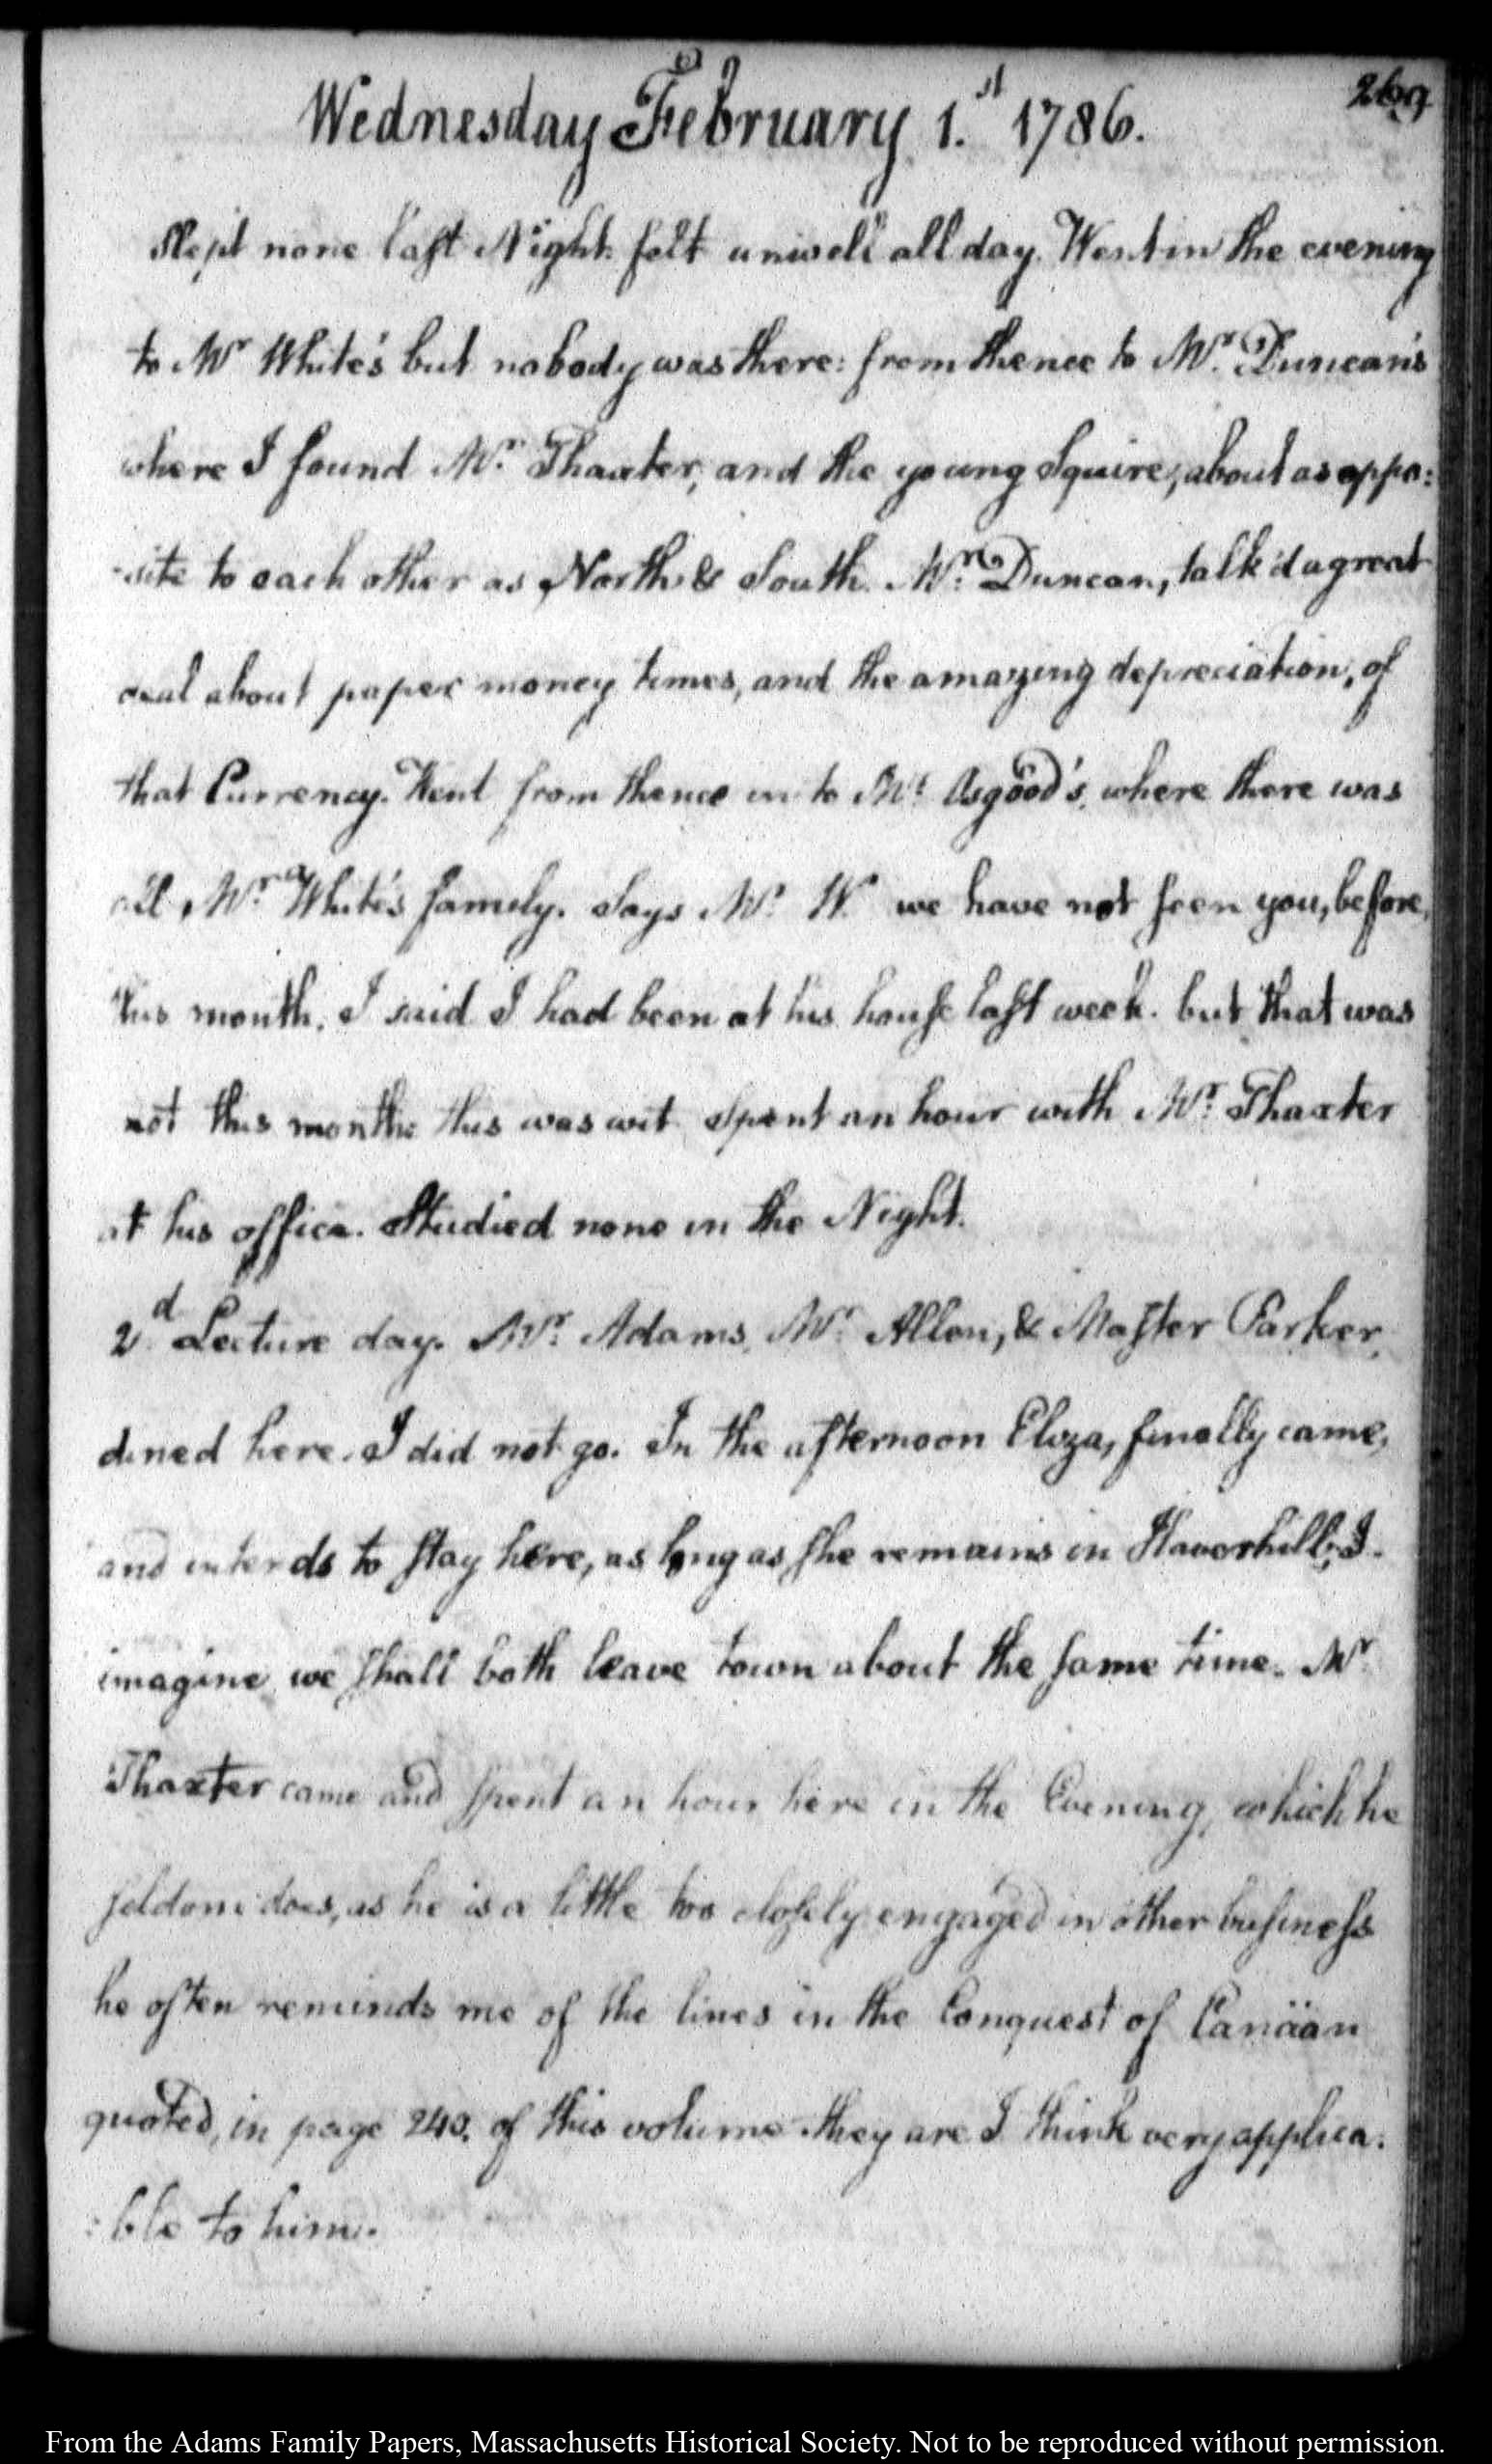 269
Wednesday February 1.st 1786.
Slept none last Night. felt unwell all day. Went in the evening
to Mr White's but nobody was there: from thence to Mr. Duncan's
where I found Mr. Thaxter, and the young Squire, about as oppo:
-site to each other as North & South. Mr. Duncan, talk'd a great
deal about paper money times, and the amazing depreciation, of
that Currency. Went from thence in to Mr. Osgood's, where there was
all Mr. White's family. Says Mr. W. we have not seen you, before,
this month. I said I had been at his house last week. but that was
not this month: this was wit. Spent an hour with Mr. Thaxter
at his office. Studied none in the Night.
2d. Lecture day. Mr. Adams, Mr. Allen, & Master Parker,
dined here. I did not go. In the afternoon Eliza, finally came,
and intends to stay here, as long as she remains in Haverhill; I
imagine we shall both leave town about the same time. Mr
Thaxter came and spent an hour here in the Evening, which he
seldom does, as he is a little too closely engaged in other business
he often reminds me of the lines in the Conquest of Canäan
quoted, in page 240. of this volume they are I think very applica:
:ble to him.
From the Adams Family Papers, Massachusetts Historical Society. Not to be reproduced without permission.